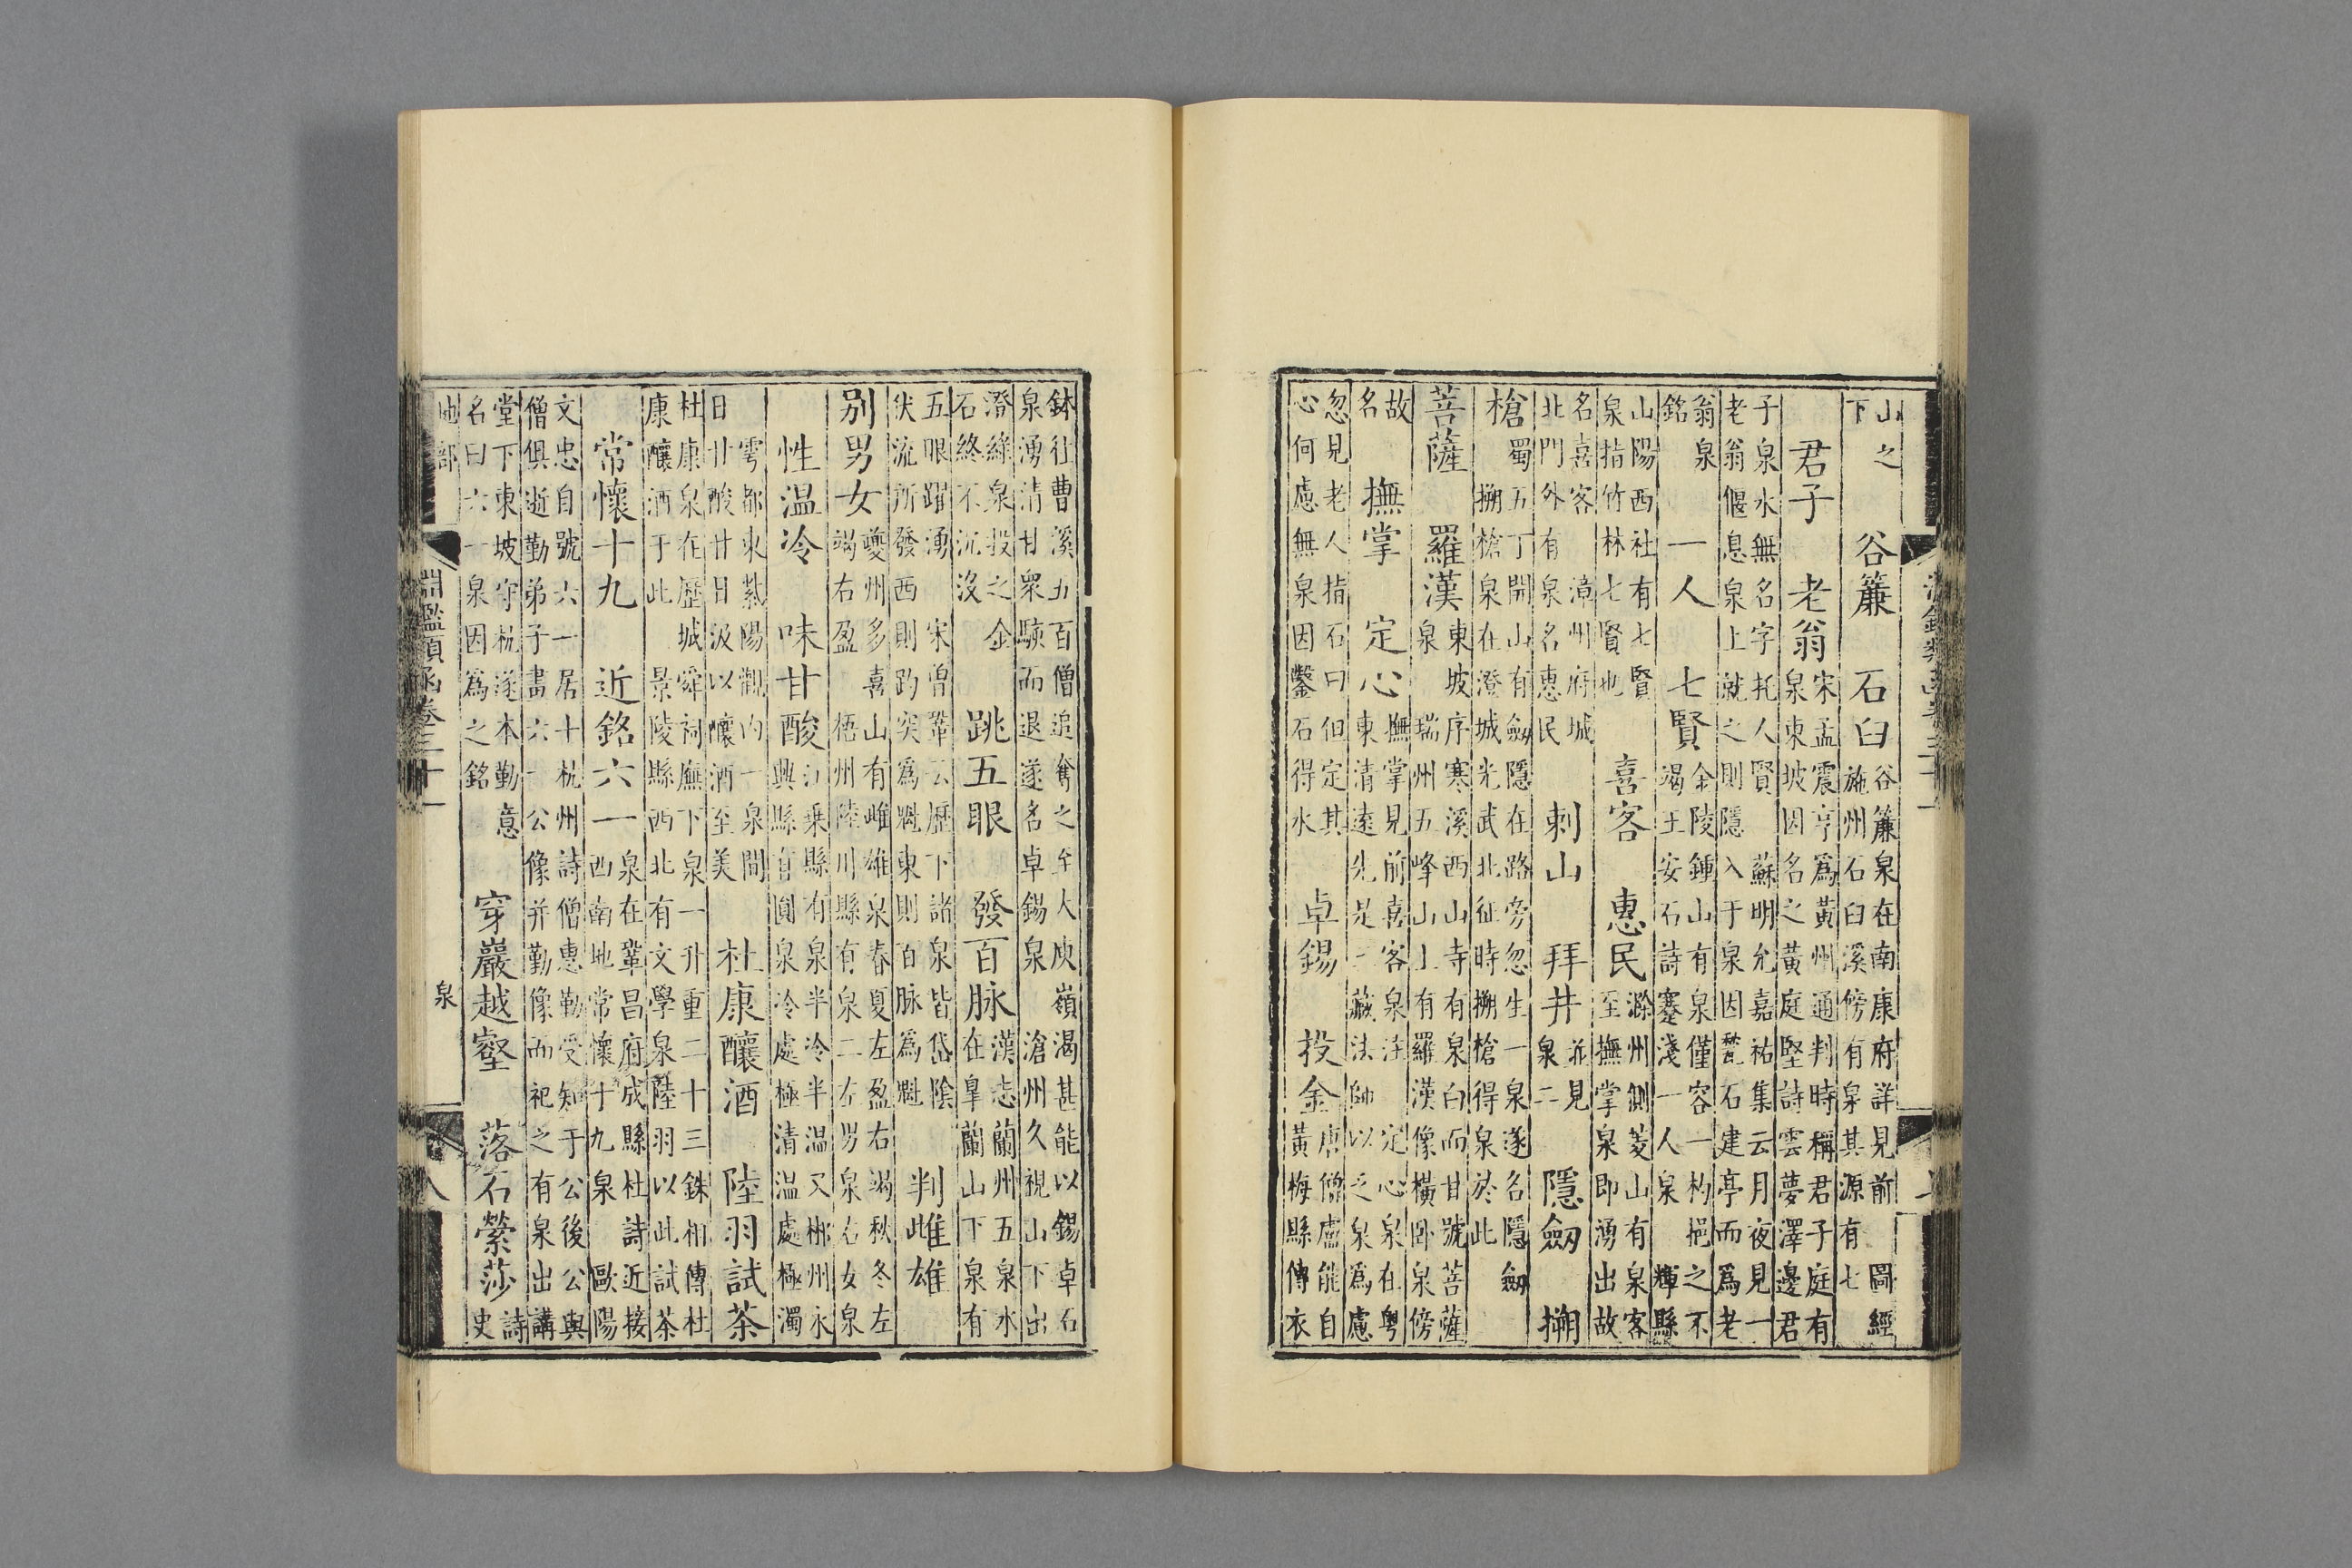 山之
下
谷簾　石臼
谷簾泉在南康府詳見前　圖經
施州石臼溪傍有泉其源有七
君子　老翁
宋孟震亨爲黃州通判時稱君子庭有
泉東坡因名之黃庭堅詩雲夢澤邊君
子泉水無名字托人賢　蘇明允嘉祐集云月夜見一
老翁偃息泉上就之則隱入于泉因甃石建亭而爲老
翁泉
銘
一人　七賢
金陵鍾山有泉僅容一杓挹之不
竭王安石詩蹇淺一人泉　輝縣
山陽西社有七賢
泉指竹林七賢也
喜客　惠民
滁州測菱山有泉客
至撫掌泉即湧出故
名喜客　漳州府城
北門外有泉名惠民
刺山　拜井
並見
泉二
隱劒　搠
槍
蜀五丁開山有劒隱在路旁忽生一泉遂名隱劒
搠槍泉在澄城光武北征時搠槍得泉於此
菩薩　羅漢
東坡序寒溪西山寺有泉白而甘號菩薩
泉　瑞州五峰山上有羅漢像橫卧泉傍
故
名
撫掌　定心
撫掌見前喜客泉注　定心泉在粤
東清遠先是三藏法師以之泉爲慮
忽見老人指石曰但定其
心何慮無泉因鑿石得水
卓錫　投金
唐僧盧能自
黃梅縣傳衣
鉢往曹溪五百僧追奪之至大庾嶺渴甚能以錫卓石
泉湧清甘衆駭而退遂名卓錫泉　滄州久視山下出
澄綠泉投之金
石終不沉沒
跳五眼　發百脉
漢志蘭州五泉水
在臯蘭山下泉有
五眼躍湧　宋曾鞏云歷下諸泉皆岱陰
伏流所發西則趵突爲魁東則百脉爲魁
判雌雄
别男女
夔州多喜山有雌雄泉春夏左盈右竭秋冬左
竭右盈　梧州陸川縣有泉二左男泉右女泉
性温冷　味甘酸
江乗縣有泉半冷半温又郴州永
興縣有圓泉冷處極清温處極濁
雩都東紫陽觀内一泉間
日甘酸廿日汲以釀酒至美
杜康釀酒　陸羽試茶
杜康泉在歷城舜祠廡下泉一升重二十三銖相傳杜
康釀酒于此　景陵縣西北有文學泉陸羽以此試茶
常懷十九　近銘六一
泉在鞏昌府成縣杜詩近接
西南地常懷十九泉　歐陽
文忠自號六一居十杭州詩僧惠勤受知于公後公與
僧俱逝勤弟子畫六一公像并勤像而祀之有泉出講
堂下東坡守杭遂本勤意
名曰六一泉因爲之銘
穿巖越壑　落石縈莎
詩
史
地部
泉
淵鑑類函卷三十一
八